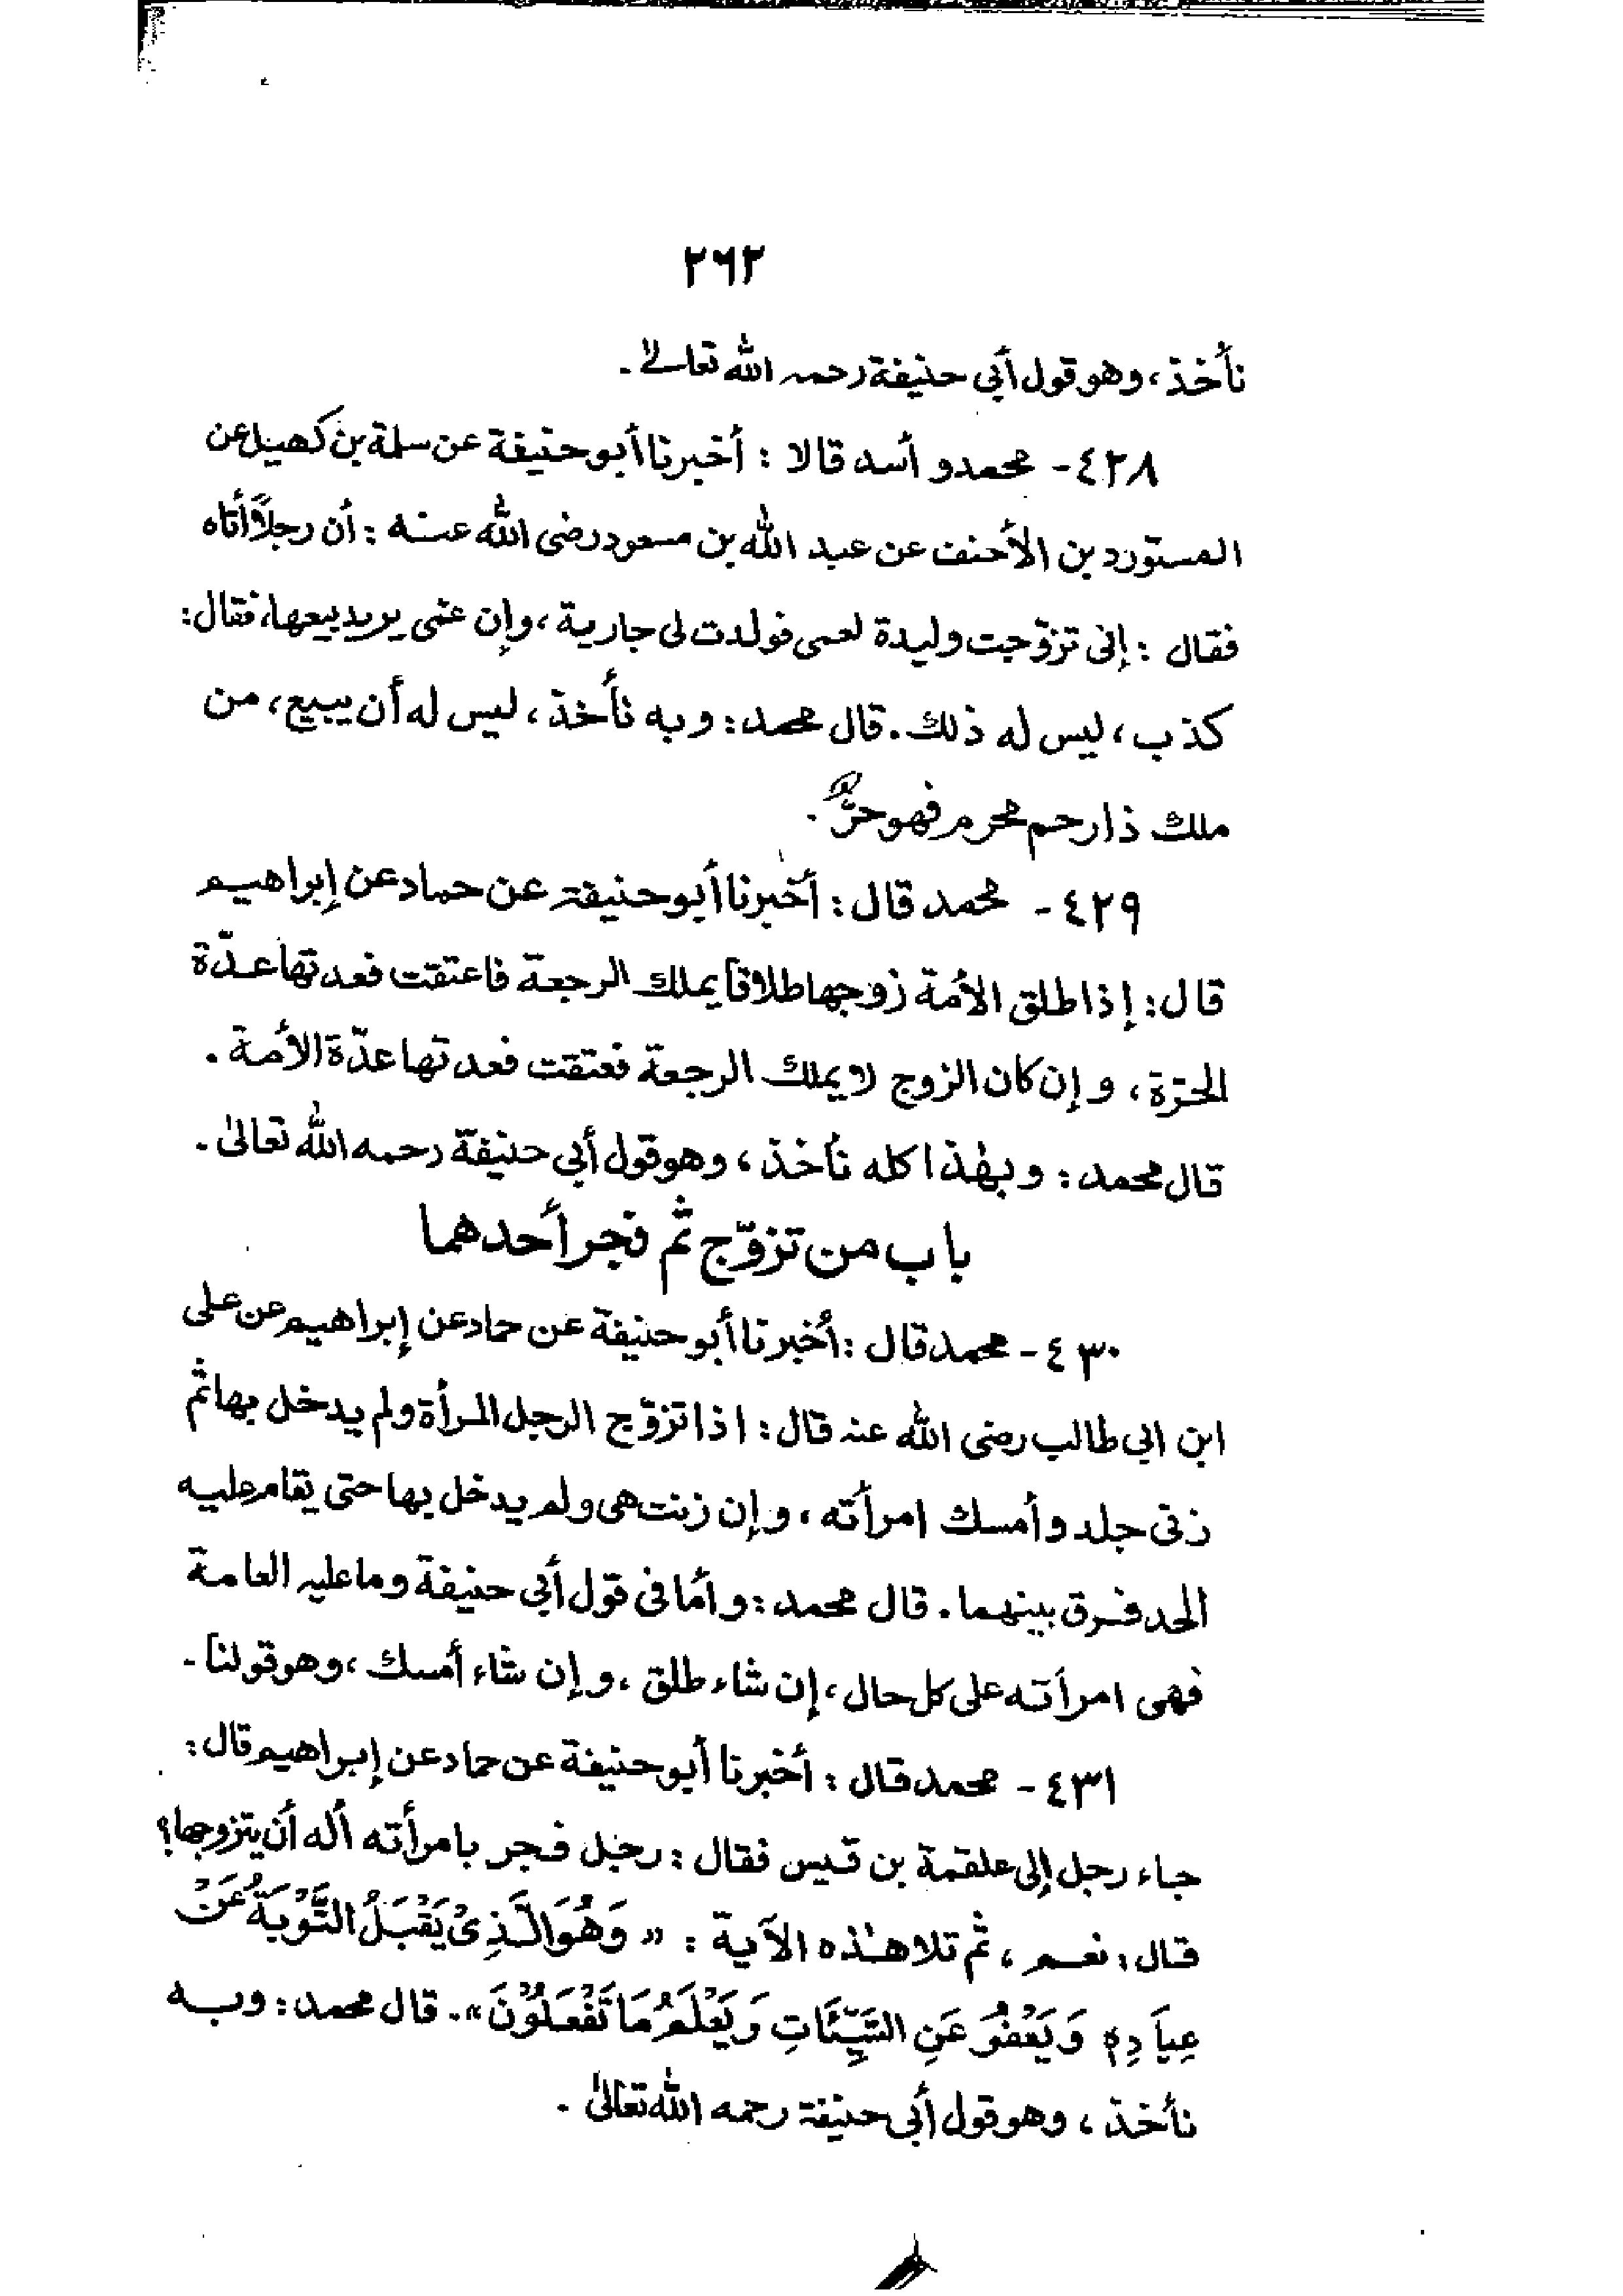 ٢٦٢
نأخذ، وهو قول أبي حنيفة رحمه الله تعالى.
٤٢٨- محمد و أسد قالا : أخبرنا أبو حنيفة عن سلمة بن كهيل عن
المستورد بن الأحنف عن عبد الله بن مسعود رضى الله عنه : أن رجلاً أتاه
فقال : إنى تزوّجت وليدة لعمى فولدت لى جارية، وإن عمّى يريد بيعها، فقال:
كذب، ليس له ذلك. قال محمد: وبه نأخذ، ليس له أن يبيع، من
ملك ذا رحم محرم فهو حرّ.
٤٢٩- محمد قال: أخبرنا أبو حنيفة عن حماد عن إبراهيم
قال: إذا طلق الأمة زوجها طلاقا يملك الرجعة فاعتقت فعدتها عدّة
الحرّة، وإن كان الزوج لا يملك الرجعة فعتقت فعدتها عدّة الأمة.
قال محمد: وبهٰذا كله نأخذ، وهو قول أبي حنيفة رحمه الله تعالىٰ.
باب من تزوّج ثم فجر أحدهما
٤٣٠- محمد قال: أخبرنا أبو حنيفة عن حماد عن إبراهيم عن على
ابن ابى طالب رضى الله عنه قال: اذا تزوّج الرجل المرأة ولم يدخل بها ثم
زنى جلد وأمسك امرأته، وإن زنت هى ولم يدخل بها حتى يقام عليه
الحد فرق بينهما. قال محمد: وأما فى قول أبي حنيفة وما عليه العامة
فهى امرأته على كل حال، إن شاء طلق، وإن شاء أمسك، وهو قولنا.
٤٣١- محمد قال: أخبرنا أبو حنيفة عن حماد عن إبراهيم قال:
جاء رجل إلى علقمة بن قيس فقال: رجل فجر بامرأته أله أن يتزوجها؟
قال: نعم، ثم تلا هٰذه الآية: «وَهُوَ الَّذِىْ يَقْبَلُ التَّوْبَةَ عَنْ
عِبَادِهٖ وَيَعْفُوْ عَنِ السَّيِّئَاتِ وَيَعْلَمُ مَا تَفْعَلُوْنَ». قال محمد: وبه
نأخذ، وهو قول أبى حنيفة رحمه الله تعالىٰ.